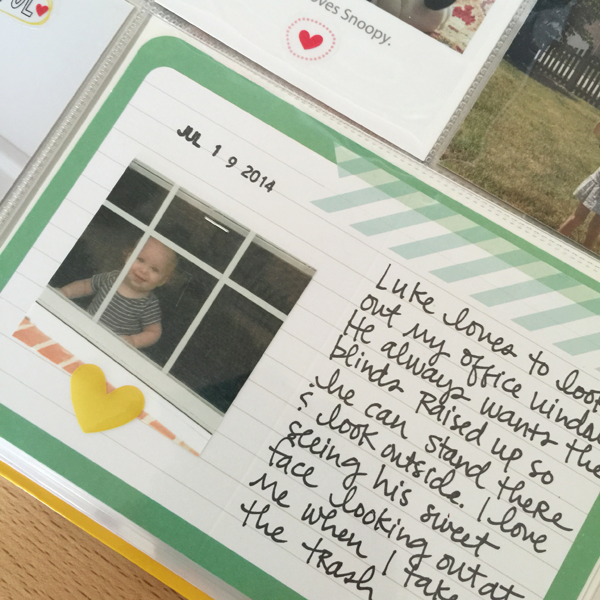 oves Snoopy.
JUL 19 2014
Luke loves to look
out my office window
He always wants the
blinds Raised up so
he can stand there
& look outside. I love
seeing his sweet
face looking out at
me when I take
the trash